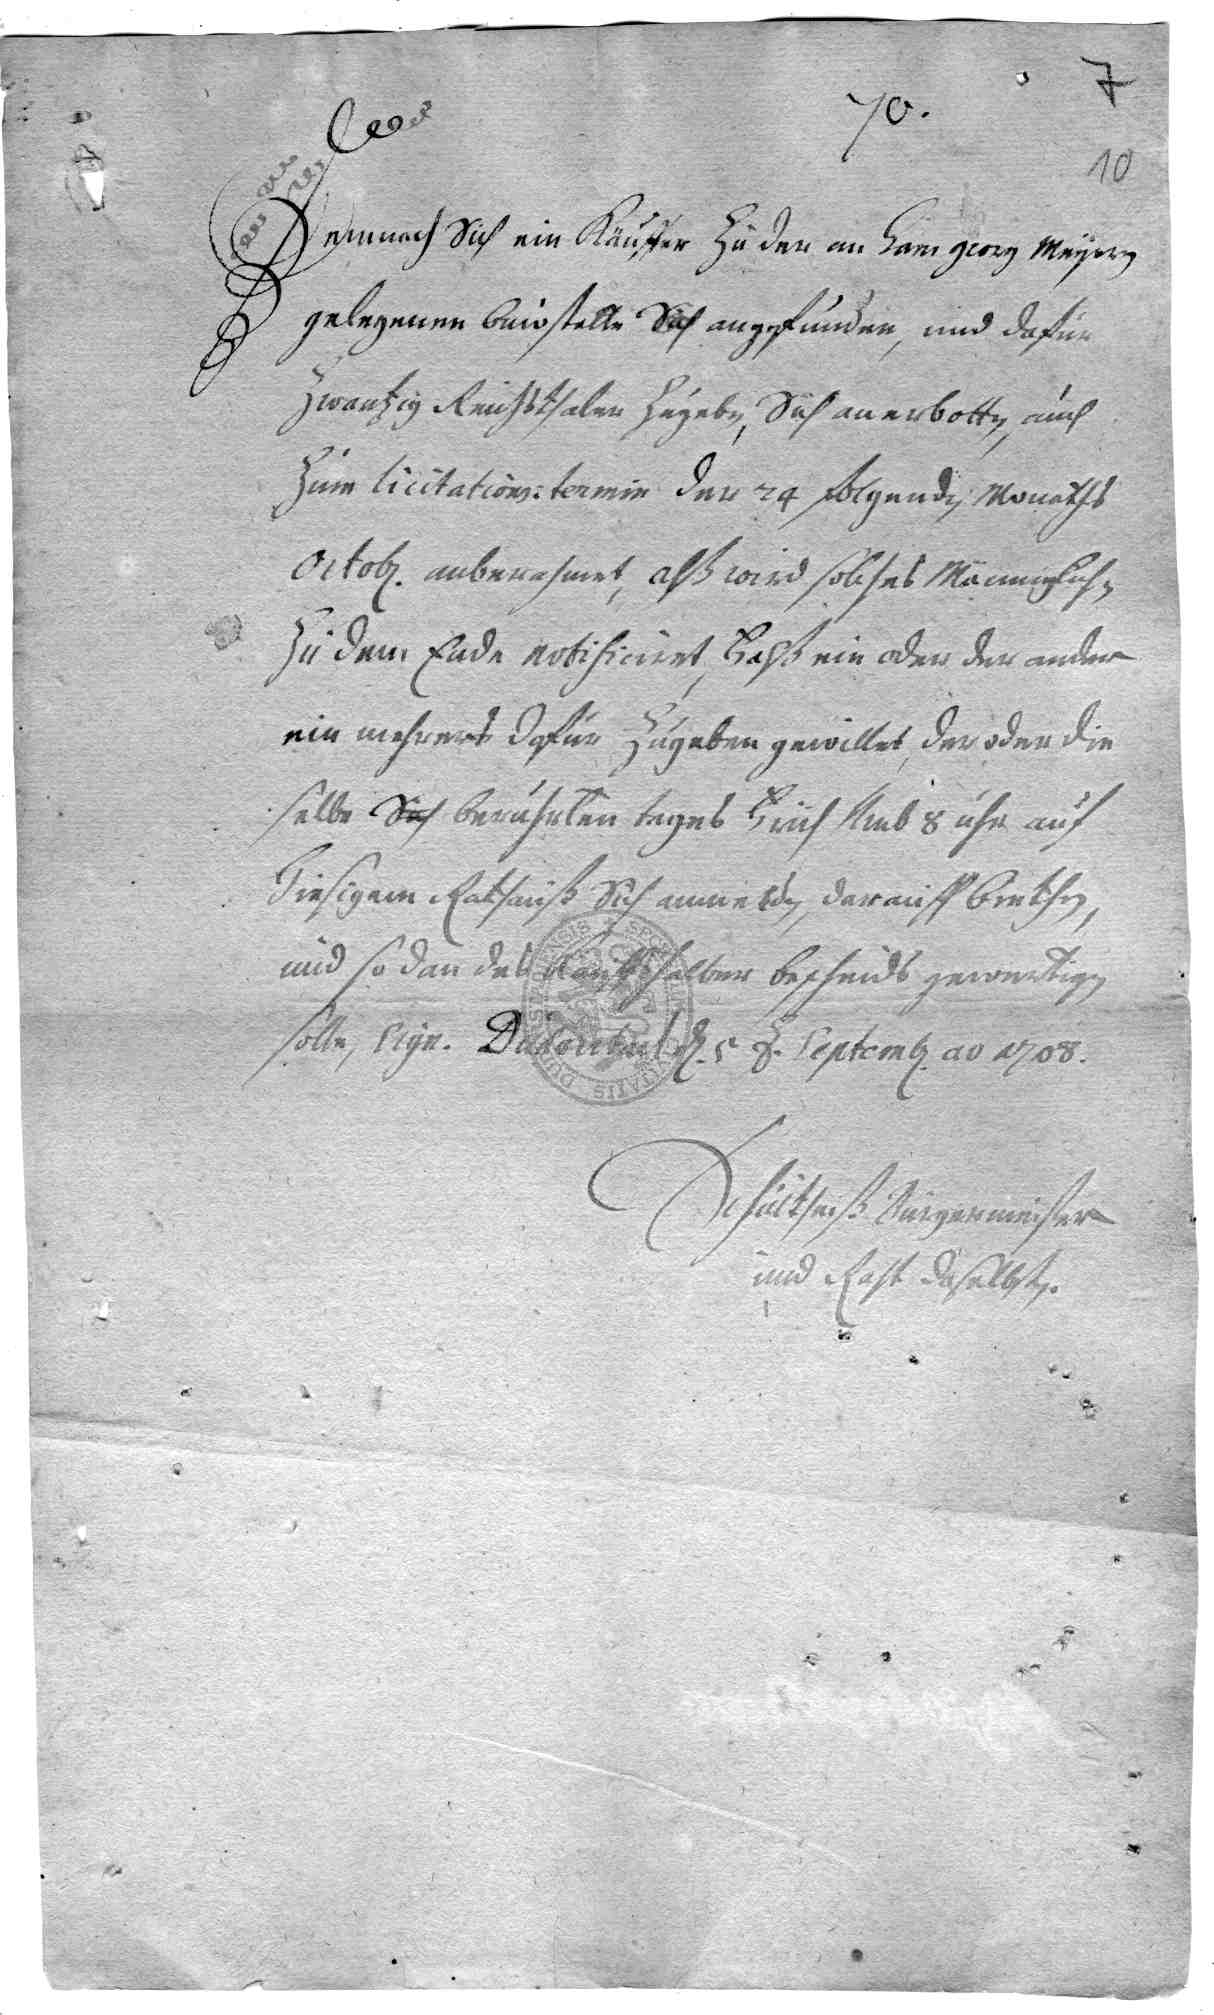 7
70.
10
Demnach Sich ein Käuffer Zu der an Hanß Georg Meÿern
gelegenen baustelle Sich angefunden, und dafür
Zwantzig Reichsthaler Zugeben, Sich anerbotten, auch
Zum licitations: termin der 24 folgenden Monaths
Octobr. anberahmet, alß wird solches Männiglichen
Zu dem Ende notificiret, daß ein oder der ander
ein mehrers dafür Zugeben gewillet, der oder die
selbe Sich berührten tages früh Umb 8 uhr auf
hiesigem Rathauß Sich anmelden, darauff biethen,
und so dan des Kauffs halber bescheids gewertigen
solle, Sign. d. 5 t. Septembr. ao 1708.
Schultheiß Bürgermeister
und Raht daselbsten.